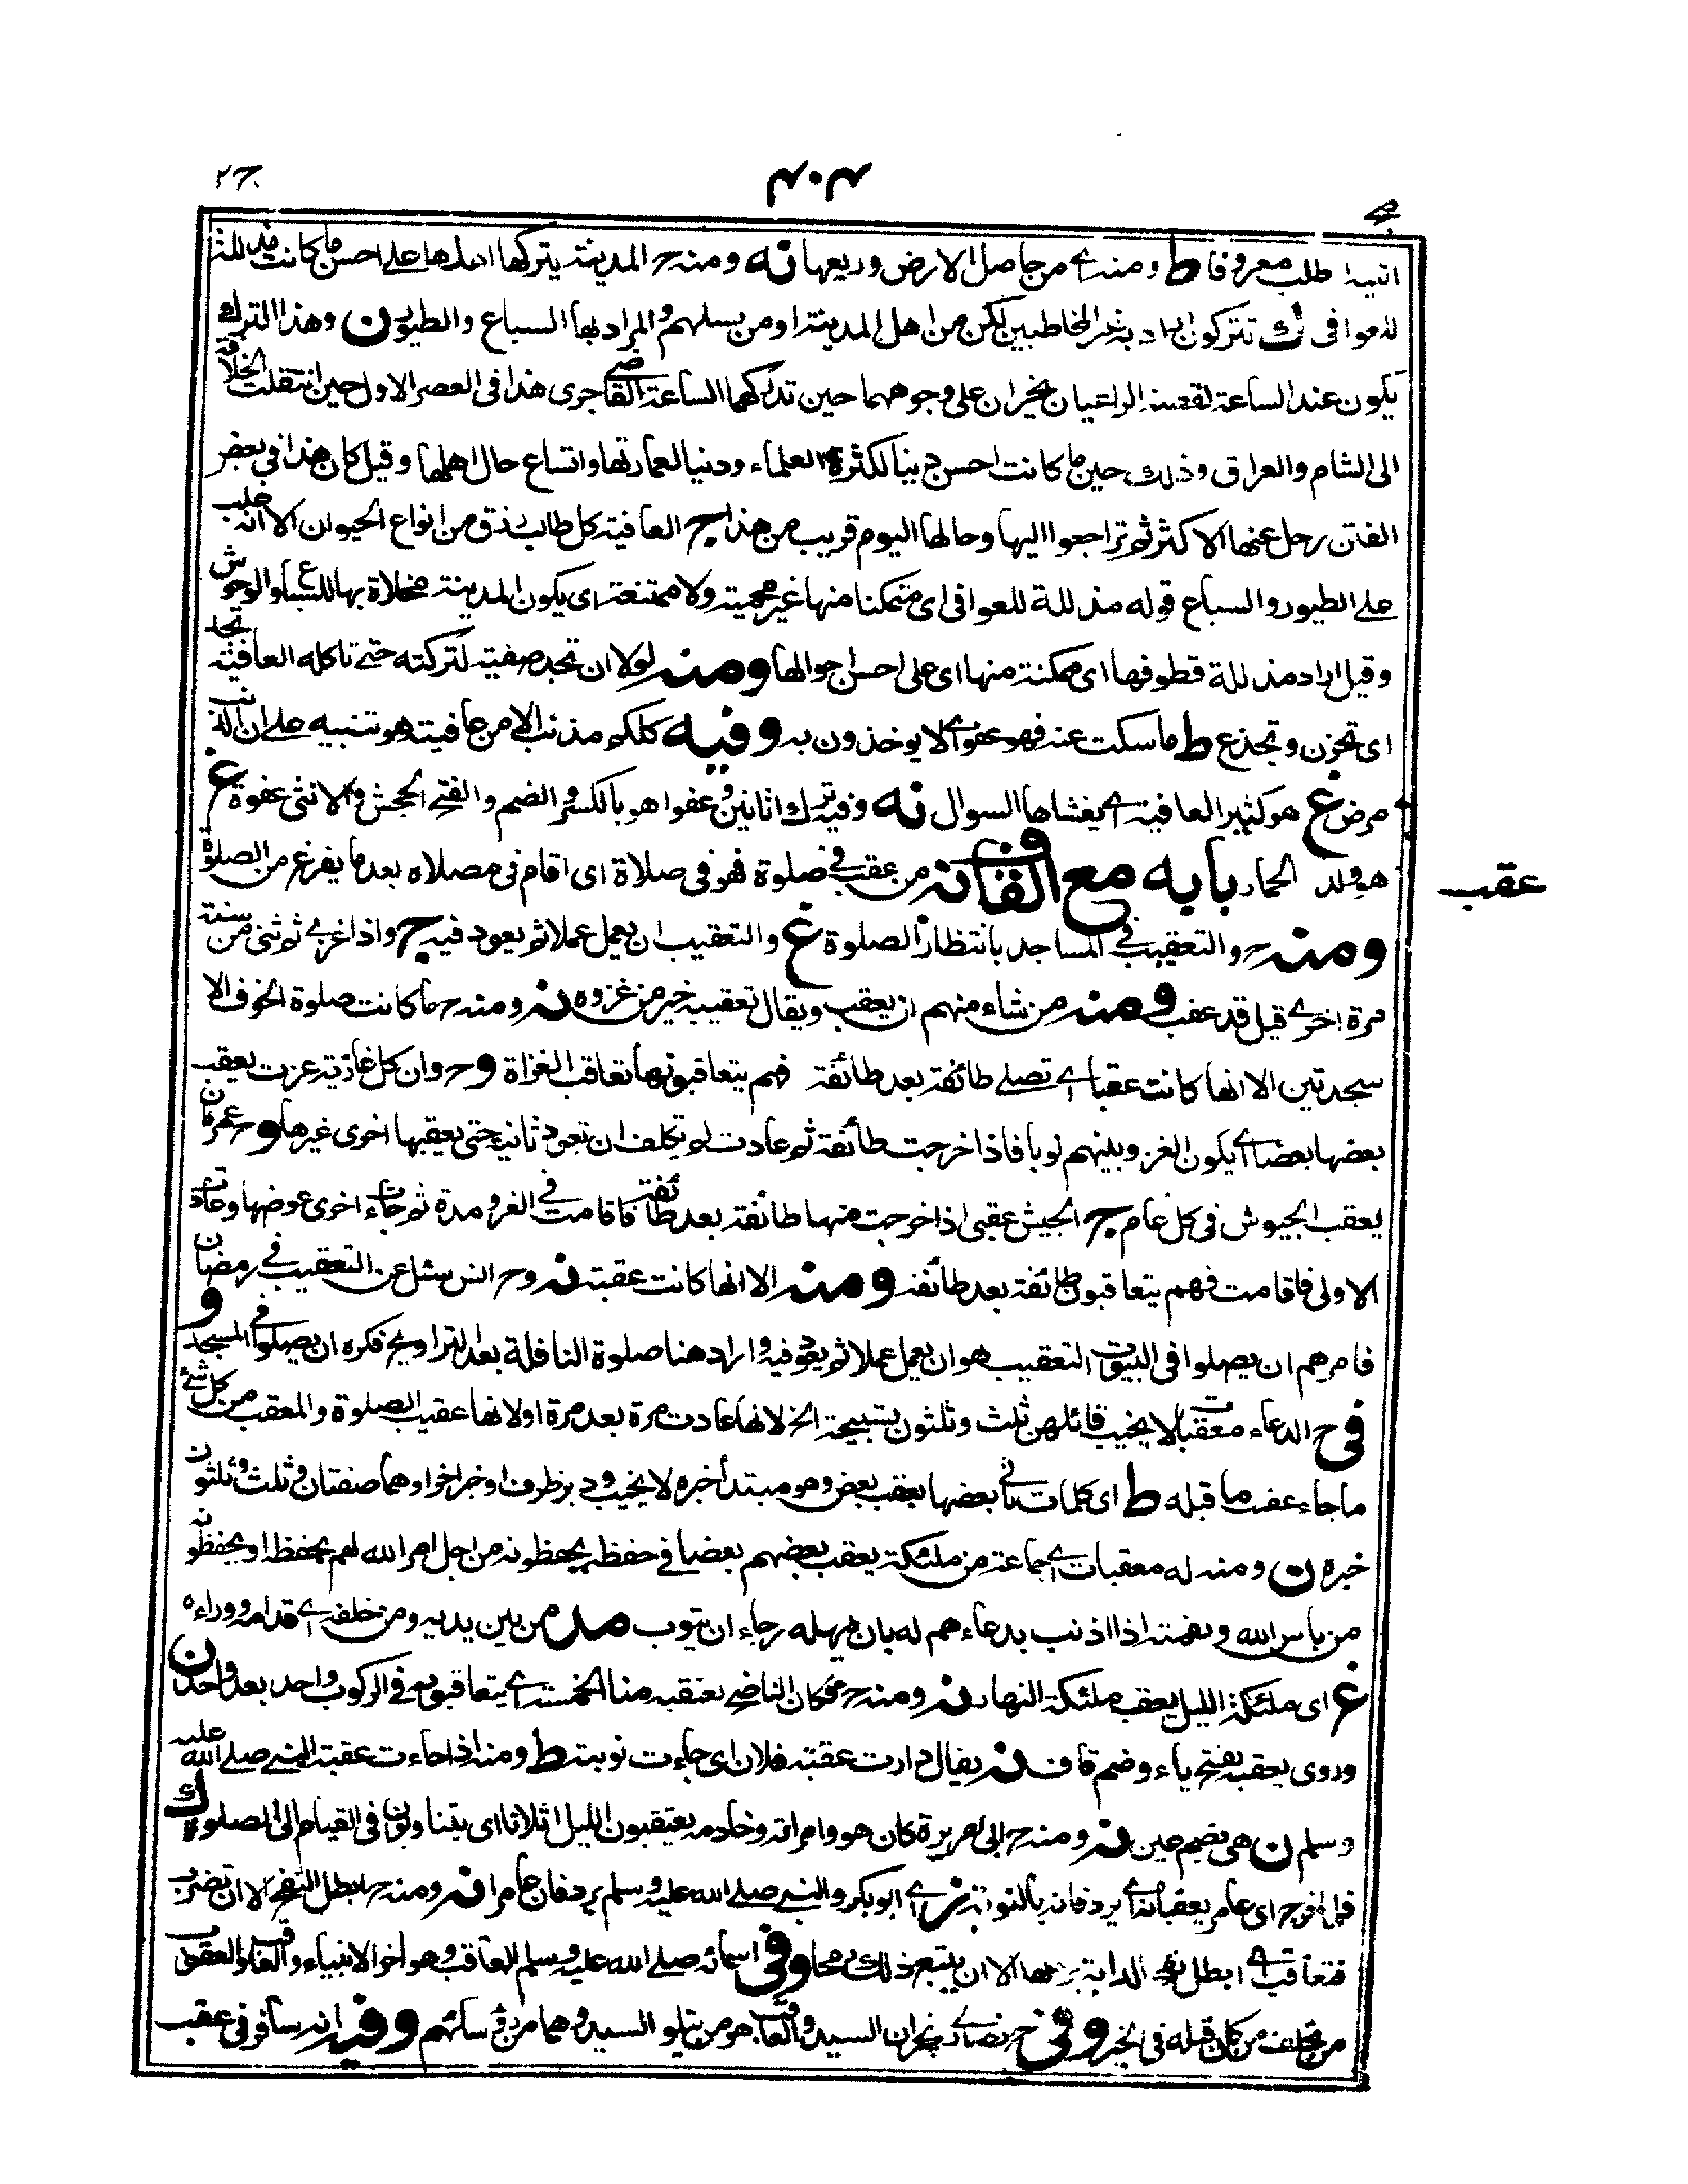 طلب معروفا ط ومنه من حاصل الارض وريعها نه ومنه ح المدينة يتركها اهلها على احسن ما كانت مذللة
للعوافى ك تتركون اراد به غير المخاطبين لكن من اهل المدينة او من نسلهم والمراد بها السباع والطيور ن وهذا الترك
يكون عند الساعة لقصة الراعيان يخران على وجوههما حين تدركهما الساعة القاضى جرى هذا فى العصر الاول حين انتقلت الخلافة
الى الشام والعراق وذلك حين ما كانت احسن دينا لكثرة العلماء ودنيا لعمارتها واتساع حال اهلها وقيل كان هذا فى بعض
الفتن رحل عنها الاكثر ثم تراجعوا اليها وحالها اليوم قريب من هذا ج العافية كل طالب رزق من انواع الحيوان الا انه غلب
على الطيور والسباع قوله مذللة للعوافى اى متمكنا منها غير محمية ولا ممتنعة اى يكون المدينة مخلاة بها للسباع والوحوش
وقيل اراد مذللة قطوفها اى ممكنة منها اى على احسن احوالها ومنه لولا ان تجد صفية لتركته حتى تاكله العافية تجد
اى تحزن وتجذع ط ما سكت عنه فهو عفو اى لا يوخذون به وفيه كلكم مذنب الا من عافيته هو تنبيه على ان الذنب
مرض غ هو كثير العافية اى يغشاها السوال نه وفيه ترك اتانين وعفوا هو بالكسر والضم والفتح الجحش والانثى عفوة غ
هو ولد الحمار بابه مع القاف نه من عقب فى صلوة فهو فى صلاة اى اقام فى مصلاه بعد ما يفرغ من الصلوة
عقب
ومنه ح والتعقيب فى المساجد بانتظار الصلوة غ والتعقيب ان يعمل عملا ثم يعود فيه ج واذا غزى ثم ثنى من سنته
مرة اخرى قيل قد عقب ومنه من شاء منهم ان يعقب ويقال تعقيبه خير من غزوه نه ومنه ح ما كانت صلوة الخوف الا
سجدتين الا انها كانت عقبا اى تصلى طائفة بعد طائفة فهم يتعاقبونها تعاقب الغزاة وح وان كل غازية غزت يعقب
بعضها بعضا اى يكون الغزو بينهم نوبا فاذا خرجت طائفة ثم عادت لم تكلف ان تعود ثانية حتى يعقبها اخرى غيرها وح عمر كان
يعقب الجيوش فى كل عام ج الجيش عقبى اذا خرجت منها طائفة بعد طائفة فاقامت فى الغزو مدة ثم جاءت اخرى عوضها وعادت
الاولى فاقامت فهم يتعاقبون طائفة بعد طائفة ومنه الا انها كانت عقبة نه وح انس سئل عن التعقيب فى رمضان
فامرهم ان يصلوا فى البيوت التعقيب هو ان يعمل عملا ثم يعود فيه واراد هنا صلوة النافلة بعد التراويح فكره ان يصلوا فى المسجد و
فى ح الدعاء معقبات لا يخيب قائلهن ثلث وثلثون تسبيحة الخ لانها عادت مرة بعد مرة او لانها عقيب الصلوة والمعقب من كل شئ
ما جاء عقب ما قبله ط اى كلمات تأتى بعضها يعقب بعض وهو مبتدأ خبره لا يخيب ودبر ظرف او خبر اخر او هما صفتان وثلث وثلثون
خبره ن ومنه له معقبات اى جماعة من ملئكة يعقب بعضهم بعضا فى حفظه يحفظونه من اجل امر الله لهم بحفظه او يحفظونه
من باس الله ونقمته اذا اذنب بدعاءهم له بان يمهله رجاء ان يتوب مد من بين يديه ومن خلفه اى قدامه ووراءه
غ اى ملئكة الليل يعقب ملئكة النهار نه ومنه ح فكان الناضح يعتقبه منا الخمسة اى يتعاقبونه فى الركوب واحد بعد واحد ن
وروى يعقبه بفتح ياء وضم قاف نه يقال دارت عقبة فلان اى جاءت نوبته ط ومنه اذا جاءت عقبة النبى صلى الله عليه
وسلم ن هى بضم عين نه ومنه ح ابى هريرة كان هو وامراته وخادمه يعتقبون الليل اثلاثا اى يتناوبون فى القيام الى الصلوة ك
فلما خرج اى عامر يعقبانه اى يردفانه بالنوبة اى ابو بكر والنبى صلى الله عليه وسلم يردفان عامرا نه ومنه ح ابطل النفح الا ان تضرب
فتعاقب اى ابطل نفح الدابة برجلها الا ان يتبع ذلك رمحا وفى اسمائه صلى الله عليه وسلم العاقب وهو اخر الانبياء والعاقب والعقوب
من يخلف من كان قبله فى الخير وفى ح نصارى نجران السيد والعاقب هو من يتلو السيد وهما من رؤسائهم وفيه انه سافر فى عقب